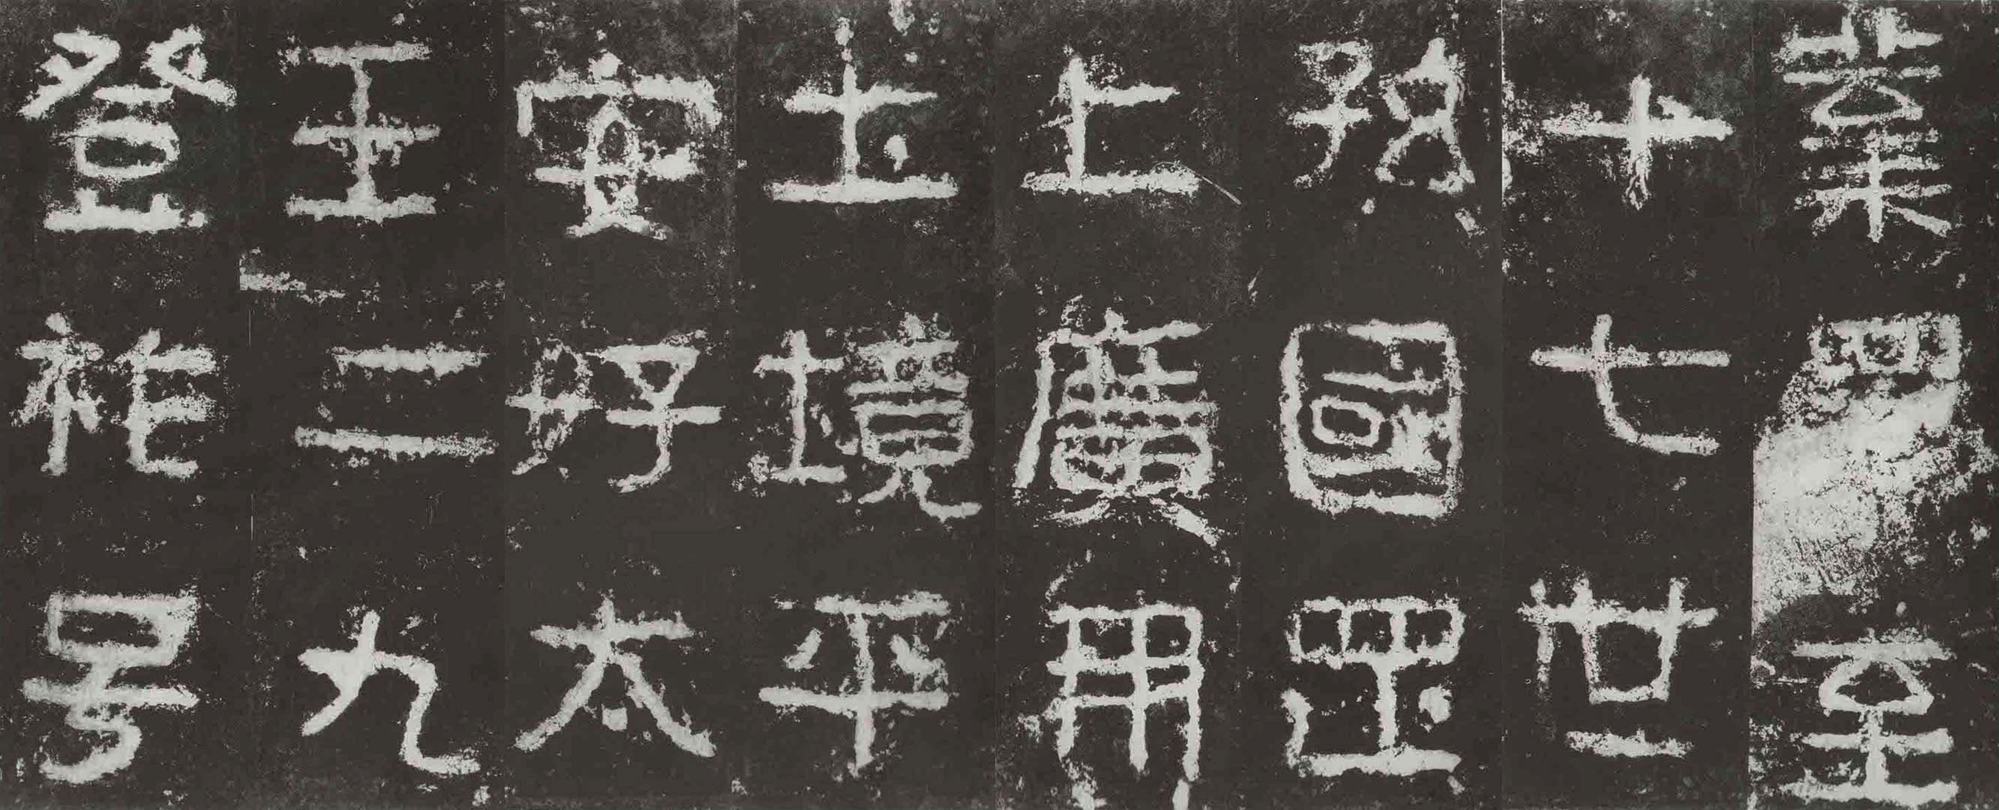 業至
十七世
孫國罡
上廣開
土境平
安好太
王二九
登祚号